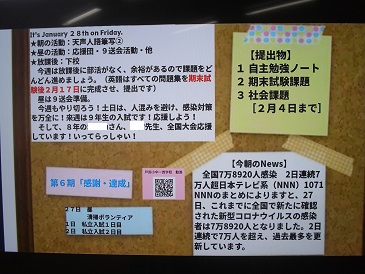 It's January 28th on Friday.
★朝の活動:天声人語筆写②
★昼の活動:応援団・9送会活動・他
★放課後:下校
今週は放課後に部活がなく、余裕があるので課題をどんどん進めましょう。(英語はすべての問題集を期末試験後2月17日に完成させ、提出です)
昼は9送会準備。
今週もやり切ろう!土日は、人混みを避け、感染対策を万全に!来週は9年生の入試です!応援しよう!
そして、8年の
さん、
先生、全国大会応援しています!いってらっしゃい!
【提出物】
1 自主勉強ノート
2 期末試験課題
3 社会課題
[2月4日まで]
第6期「感謝・達成」
27日 昼
清掃ボランティア
1日 私立入試1日目
2日 私立入試2日目
【今朝のNews】
全国7万8920人感染 2日連続7
万人超日本テレビ系(NNN)1071
NNNのまとめによりますと、27
日、これまでに全国で新たに確認さ
れた新型コロナウイルスの感染
者は7万8920人となりました。2日
連続で7万人を超え、過去最多を更
新しています。